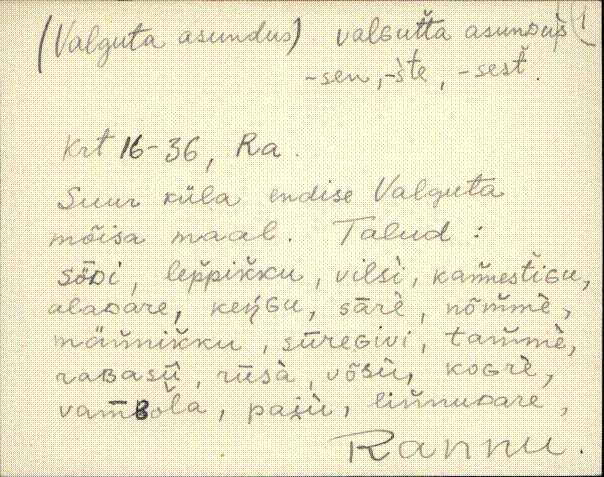 (Valguta asundus) valGut̆ta asunDus̀
-sen, -s̀te, -sest̆.
Krt 16-36, Ra.
Suur küla endise Valguta
mõisa maal. Talud :
sōDi, lep̆pik̆ku, vilsì, kan̆nest̆iGu,
alaDare, keŋGu, sārè, nõm̆mè,
män̆nik̆ku, sūreGivi, tam̆mè,
raBasū̀, rūsà, võsù, koGrè,
vamBol̆la, pajù, lin̆nuDare,
Rannu.